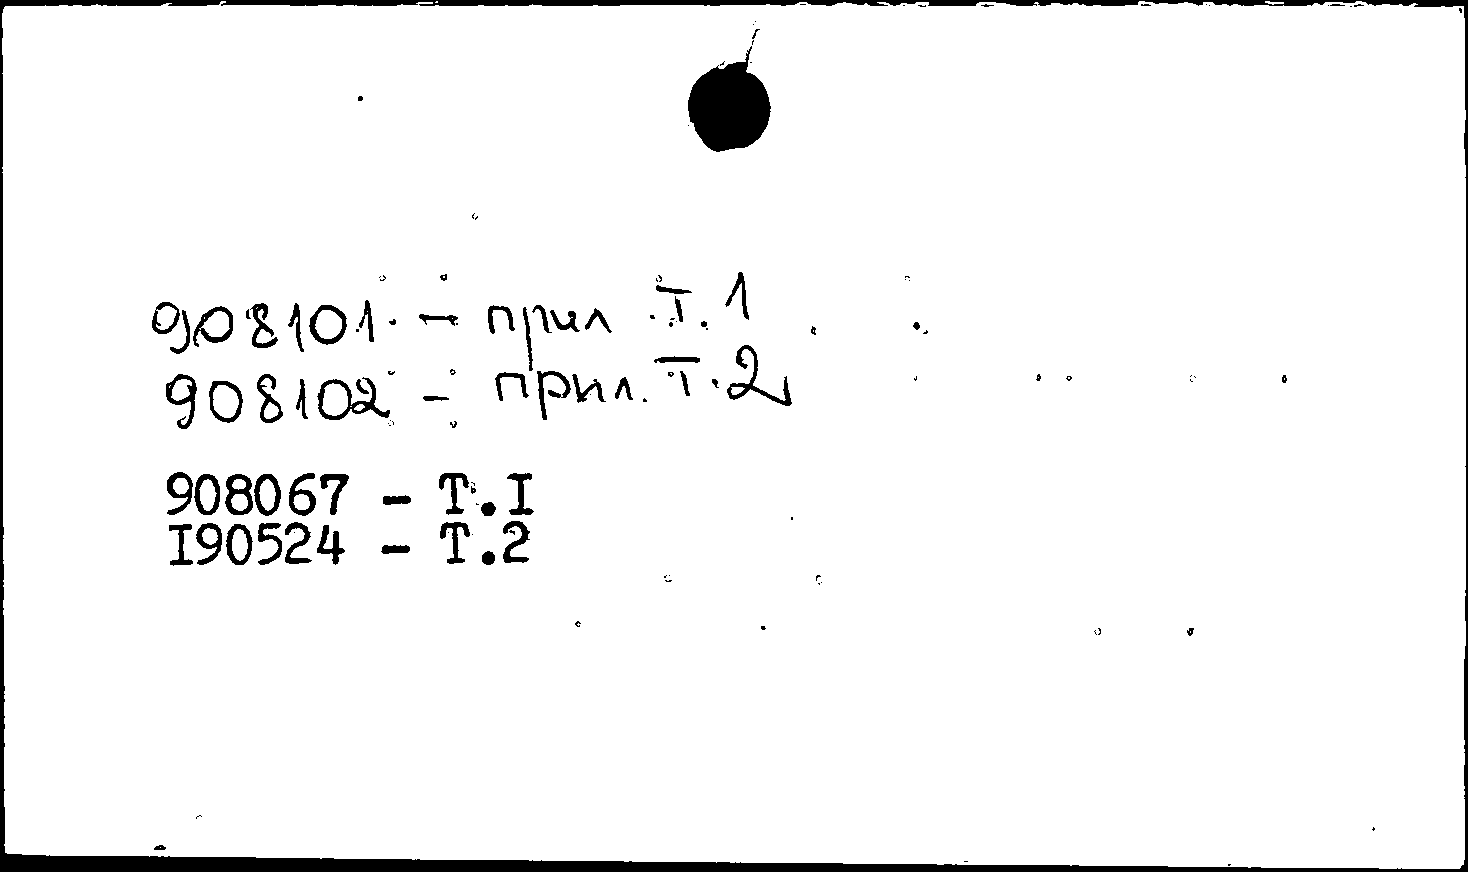 908101 - прил Т.1
908102 - прил. Т.2
908067 - Т.I
I90524 - Т.2